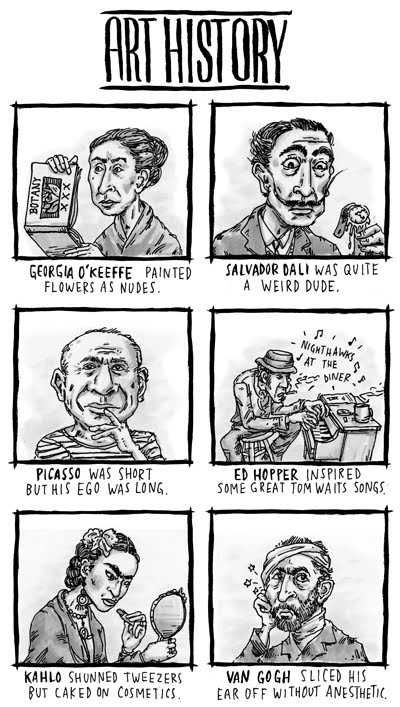 ART HISTORY
BOTANY
XXX
GEORGIA O'KEEFFE PAINTED
FLOWERS AS NUDES.
SALVADOR DALI WAS QUITE
A WEIRD DUDE.
PICASSO WAS SHORT
BUT HIS EGO WAS LONG.
NIGHTHAWKS
AT THE
DINER
ED HOPPER INSPIRED
SOME GREAT TOM WAITS SONGS.
KAHLO SHUNNED TWEEZERS
BUT CAKED ON COSMETICS.
VAN GOGH SLICED HIS
EAR OFF WITHOUT ANESTHETIC.